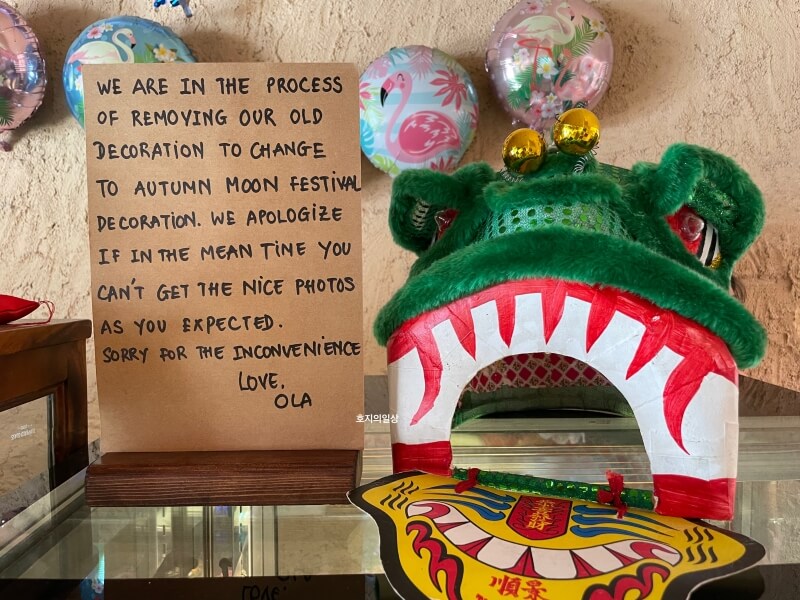 WE ARE IN THE PROCESS
OF REMOVING OUR OLD
DECORATION TO CHANGE
TO AUTUMN MOON FESTIVAL
DECORATION. WE APOLOGIZE
IF IN THE MEAN TIME YOU
CAN'T GET THE NICE PHOTOS
AS YOU EXPECTED.
SORRY FOR THE INCONVENIENCE
LOVE.
OLA
호지의일상
順景